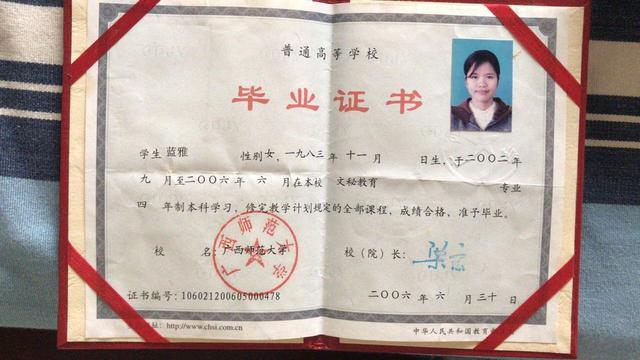 普通高等学校
毕业证书
学生 蓝雅 性别女,一九八三年十一月 日生,于二〇〇二年
九月至二〇〇六年六月在本校 文秘教育 专业
四年制本科学习,修完教学计划规定的全部课程,成绩合格,准予毕业。
校 名:广西师范大学 校(院)长:
广西师范大学
证书编号:106021200605000478 二〇〇六年六月三十日
址:http://www.chsi.com.cn 中华人民共和国教育